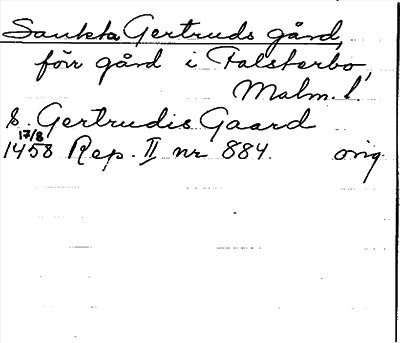 Sankta Gertruds gård,
förr gård i Falsterbo,
Malm. l.
s. Gertrudis Gaard
17/8
1458 Rep. II nr 884. orig